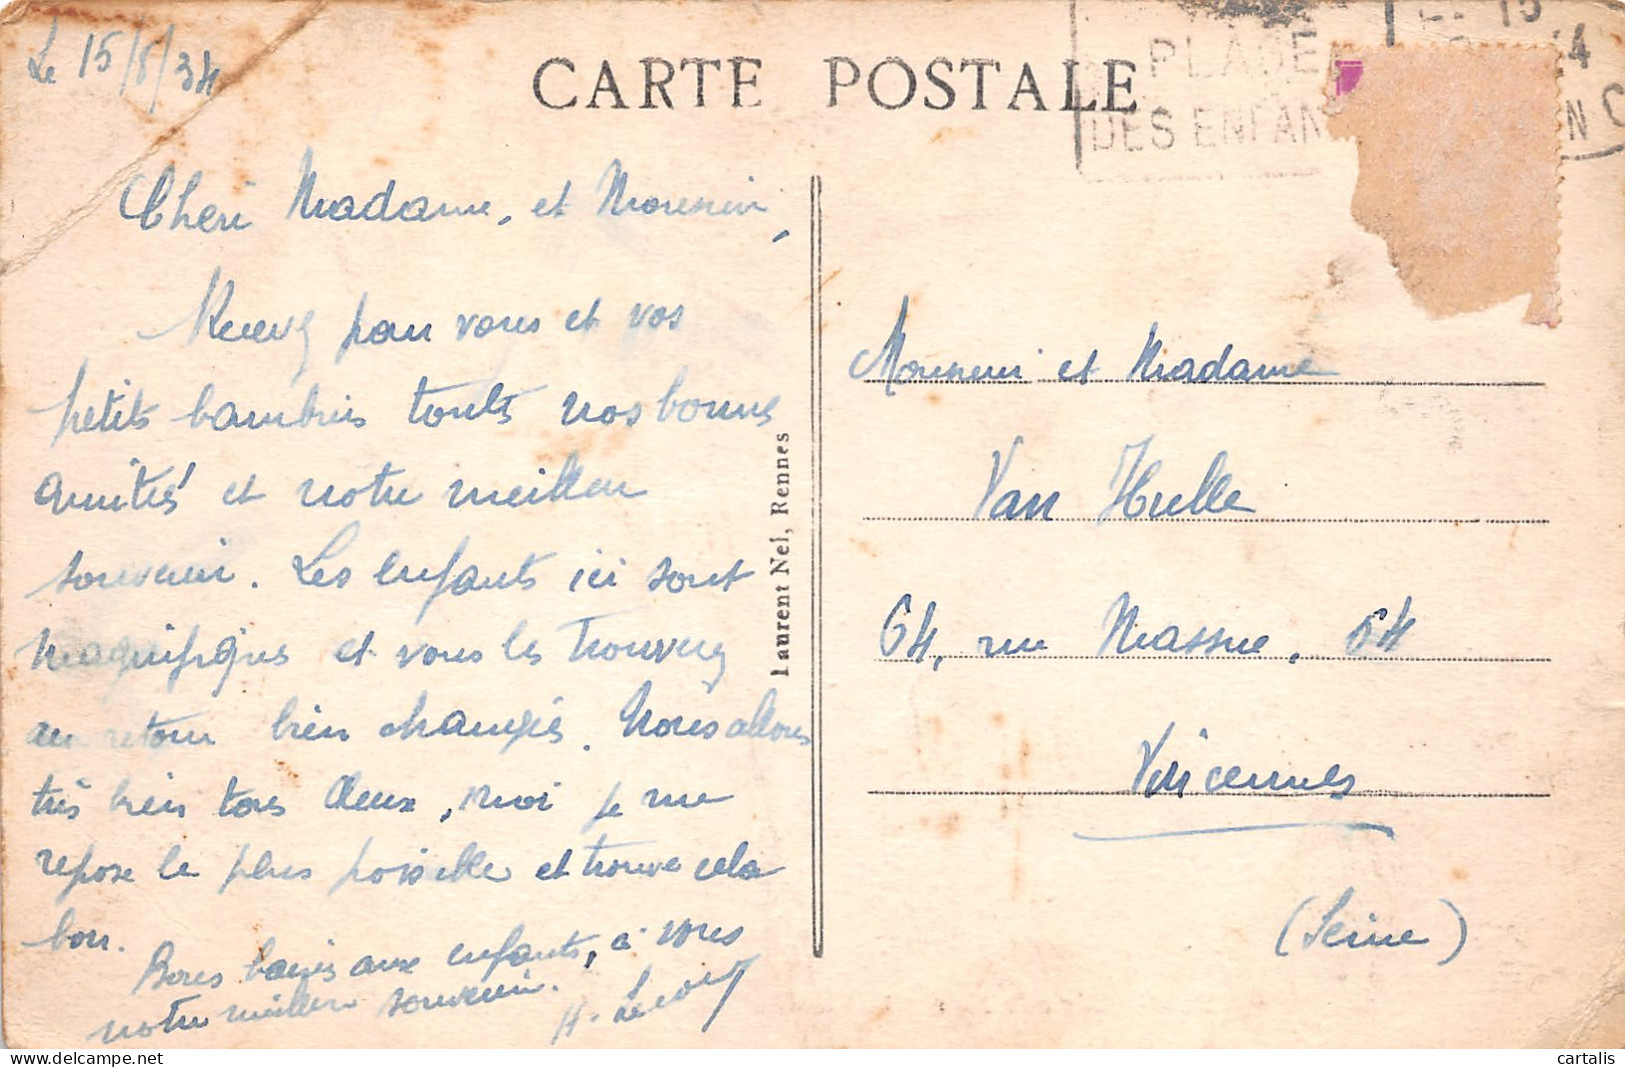 Le 15/8/34
CARTE POSTALE
PLAGE
DES ENFAN
Chèri Madame, et Monsieur,
Recevez pour vous et vos
petits bambins touts nos bonnes
amitiés et notre meilleur
souvenir. Les enfants ici sont
magnifiques et vous les trouverez
au retour bien changés. Nous allons
très bien tous deux, moi je me
repose le plus possible et trouve cela
bon.
Bons baisés aux enfants, à vous
notre meilleur souvenir.
Laurent Nel, Rennes
Monsieur et Madame
Van Hulle
64, rue Massue, 64
Vincennes
(Seine)
cartalis